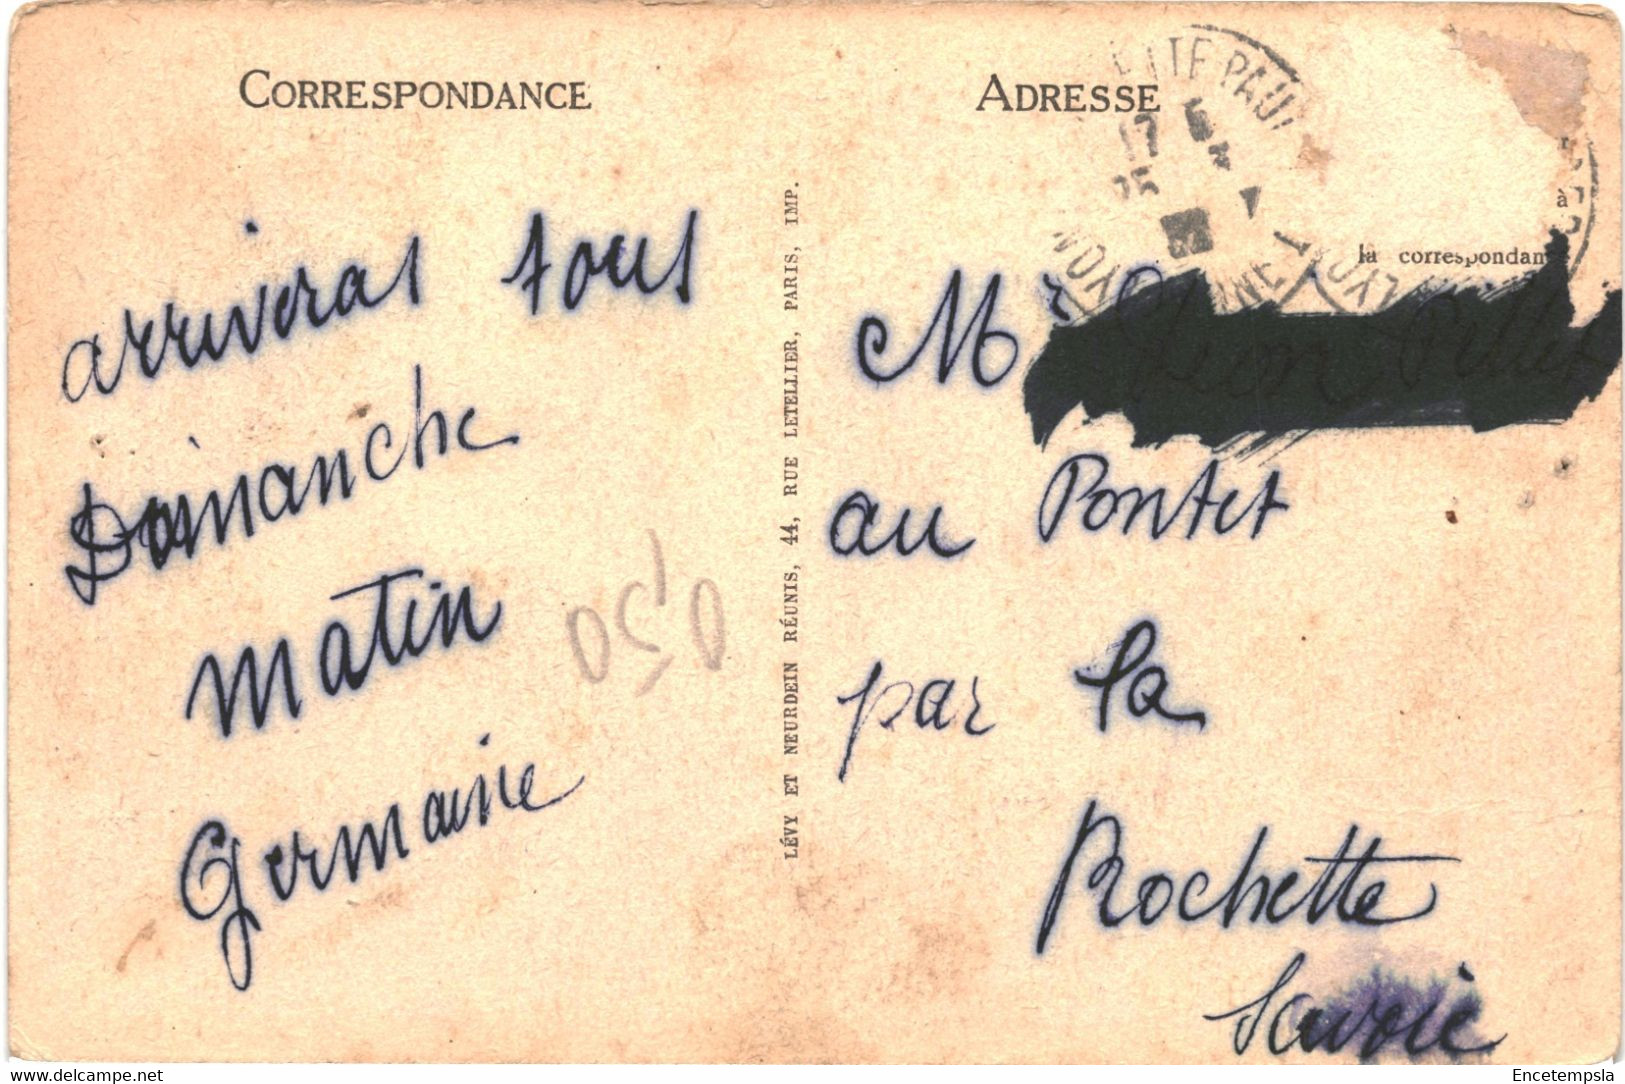 CORRESPONDANCE
arriveras tous
Domanche
matin
Germaine
0,50
LÉVY ET NEURDEIN RÉUNIS, 44, RUE LETELLIER, PARIS, IMP.
ADRESSE
à
la correspondance
Mr
au Pontet
par la
Rochette
Savoie
www.delcampe.net
Encetempsla